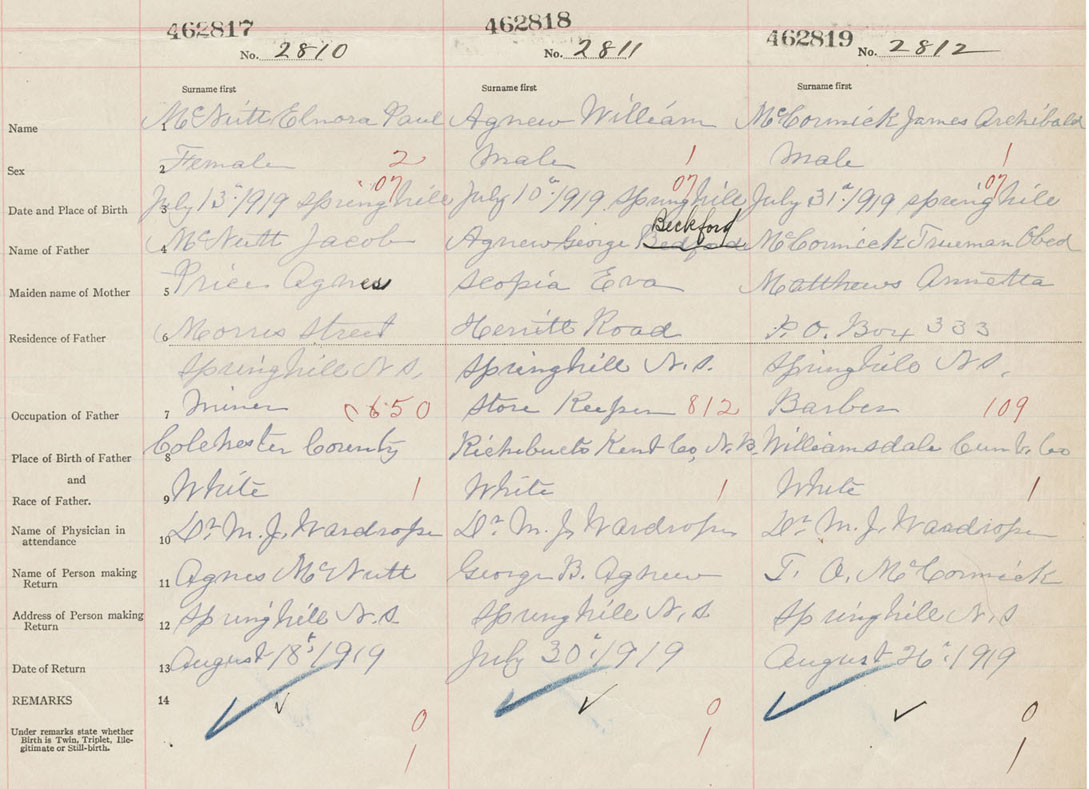 462817 462818 462819
No. 2810 No. 2811 No. 2812
Surname first Surname first Surname first
Name 1 McNutt Elnora Paul Agnew William McCormick James Archibald
Sex 2 Female 2 Male 1 Male 1
07 07 07
Date and Place of Birth 3 July 13th 1919 Springhill July 10th 1919 Springhill July 31st 1919 Springhill
Beckford
Name of Father 4 McNutt Jacob Agnew George McCormick Trueman Obed
Maiden name of Mother 5 Price Agnes Scopia Eva Matthews Annetta
Residence of Father 6 Morris Street Herritt Road P.O. Box 333
Springhill N.S. Springhill N.S. Springhill N.S.
Occupation of Father 7 Miner 650 Store Keeper 812 Barber 109
Place of Birth of Father 8 Colchester County Richibucto Kent Co, N.B. Williamsdale Cumb. Co
and
Race of Father. 9 White 1 White 1 White 1
Name of Physician in
attendance 10 Dr. M. J. Wardrope Dr. M. J. Wardrope Dr. M. J. Wardrope
Name of Person making
Return 11 Agnes McNutt George B. Agnew T. O. McCormick
Address of Person making
Return 12 Springhill N.S Springhill N.S Springhill N.S
Date of Return 13 August 18th 1919 July 30th 1919 August 26th 1919
REMARKS 14
Under remarks state whether
Birth is Twin, Triplet, Ille-
gitimate or Still-birth.
0 0 0
1 1 1